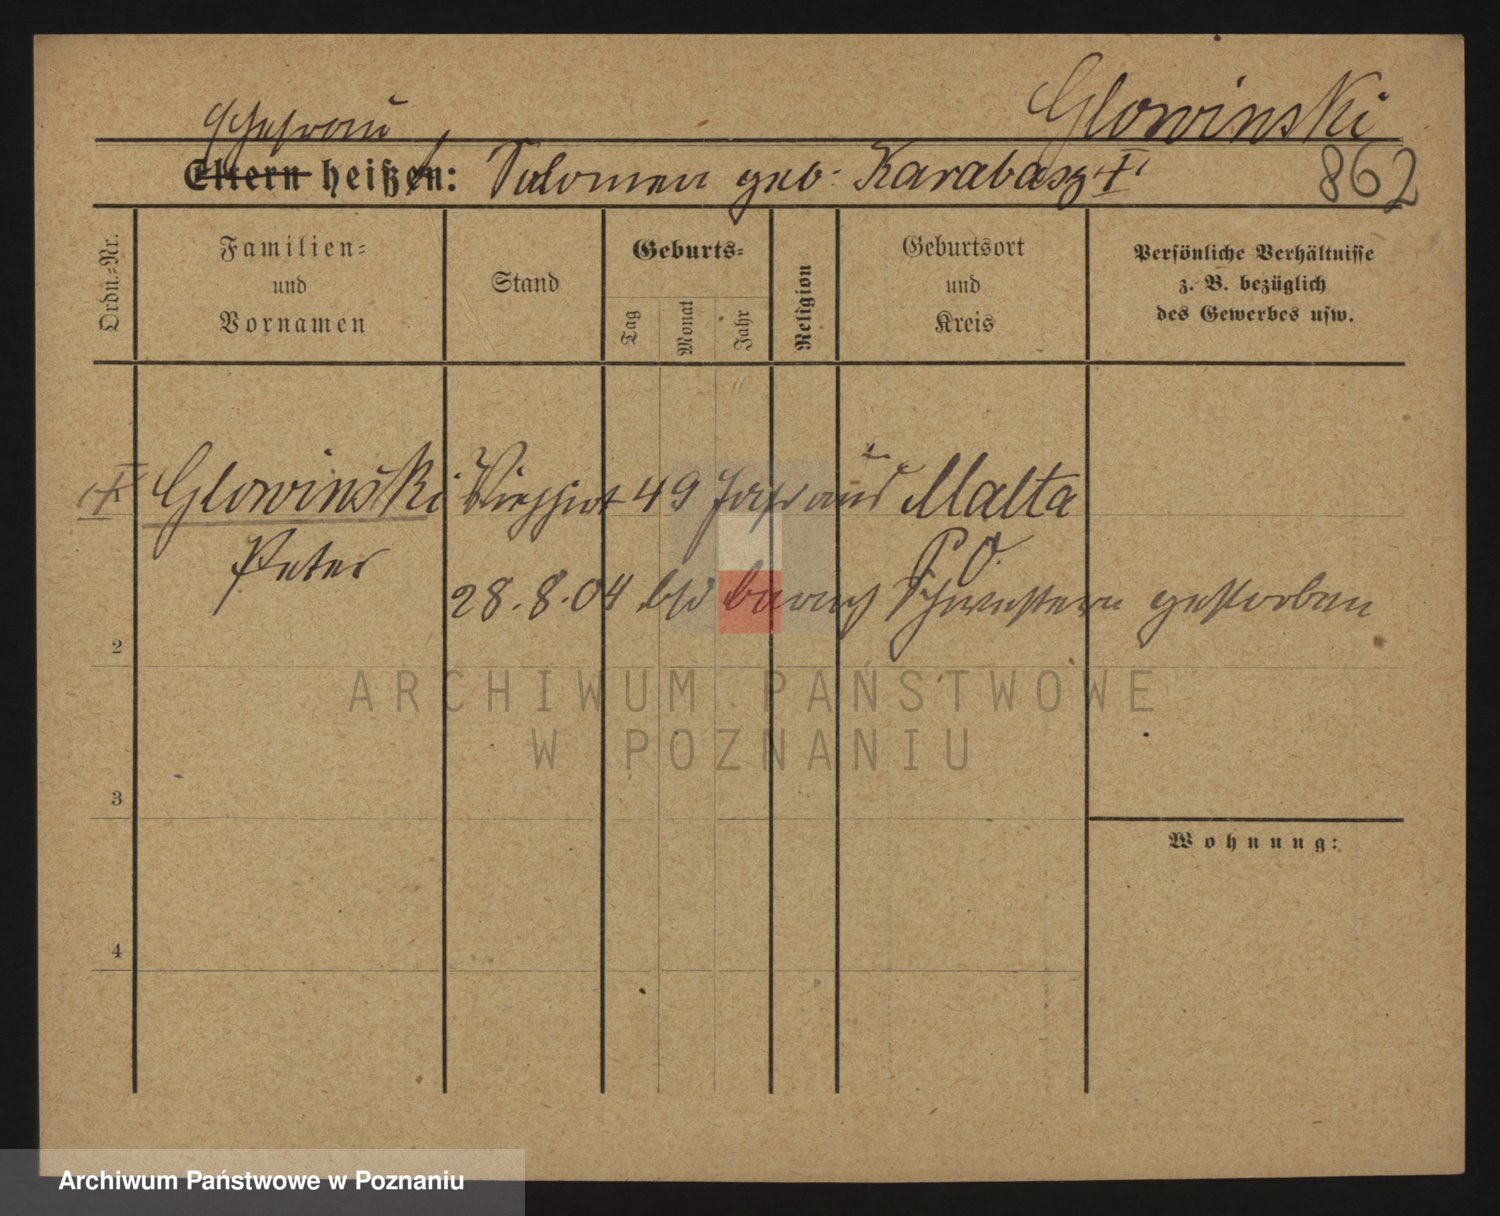 Glowinski
Ehefrau
Eltern heißen: Salomea geb. Karabasz †
862
Ordn.-Nr.
Familien-
und
Vornamen
Stand
Geburts-
Tag
Monat
Jahr
Religion
Geburtsort
und
Kreis
Persönliche Verhältnisse
z. B. bezüglich
des Gewerbes usw.
† Glowinski Viehhirt 49 Jahr aus Malta
Peter P. O.
28.8.04 bei Schwestern gestorben
2
ARCHIWUM PAŃSTWOWE
W POZNANIU
3
Wohnung:
4
Archiwum Państwowe w Poznaniu